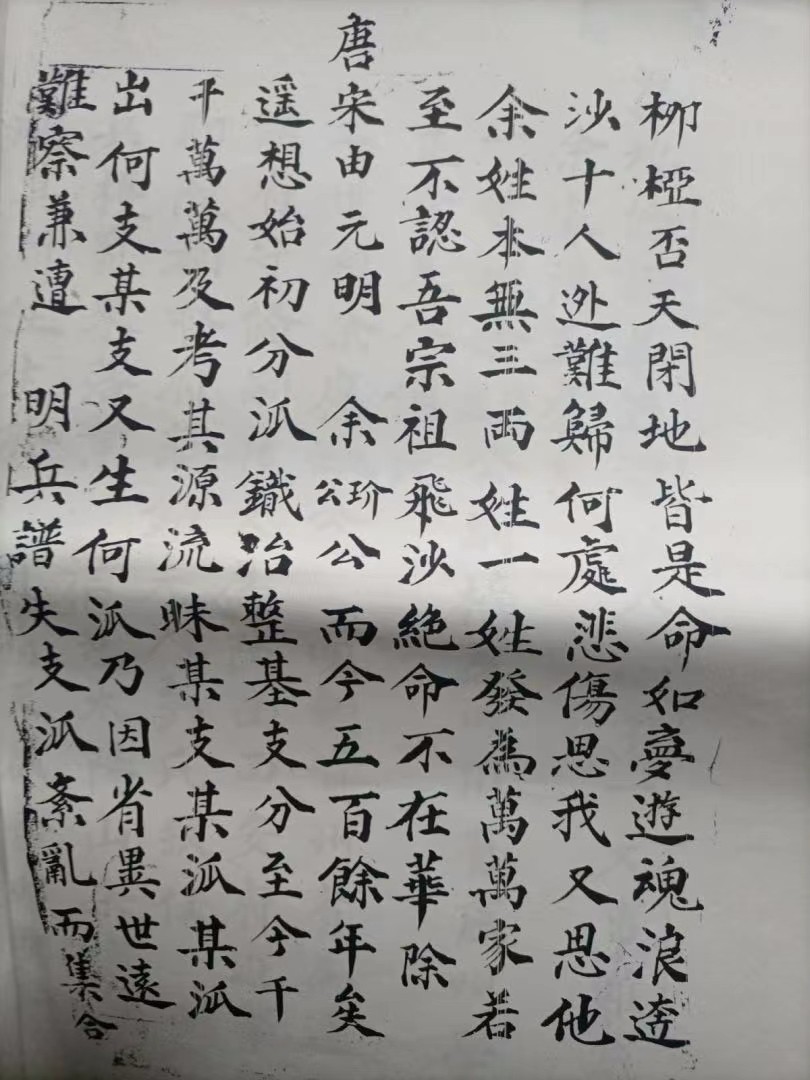 柳椏否天閉地皆是命如夢遊魂浪逩
沙十人迯難歸何處悲傷思我又思他
余姓本無三兩姓一姓發為萬萬家若
至不認吾宗祖飛沙絕命不在華除
唐宋由元明余玠公公而今五百餘年矣
遥想始初分派鐵冶整基支分至今千
千萬萬及考其源流昧某支某派某派
出何支某支又生何派乃因省異世遠
難察兼遭明兵譜失支派紊亂而集合